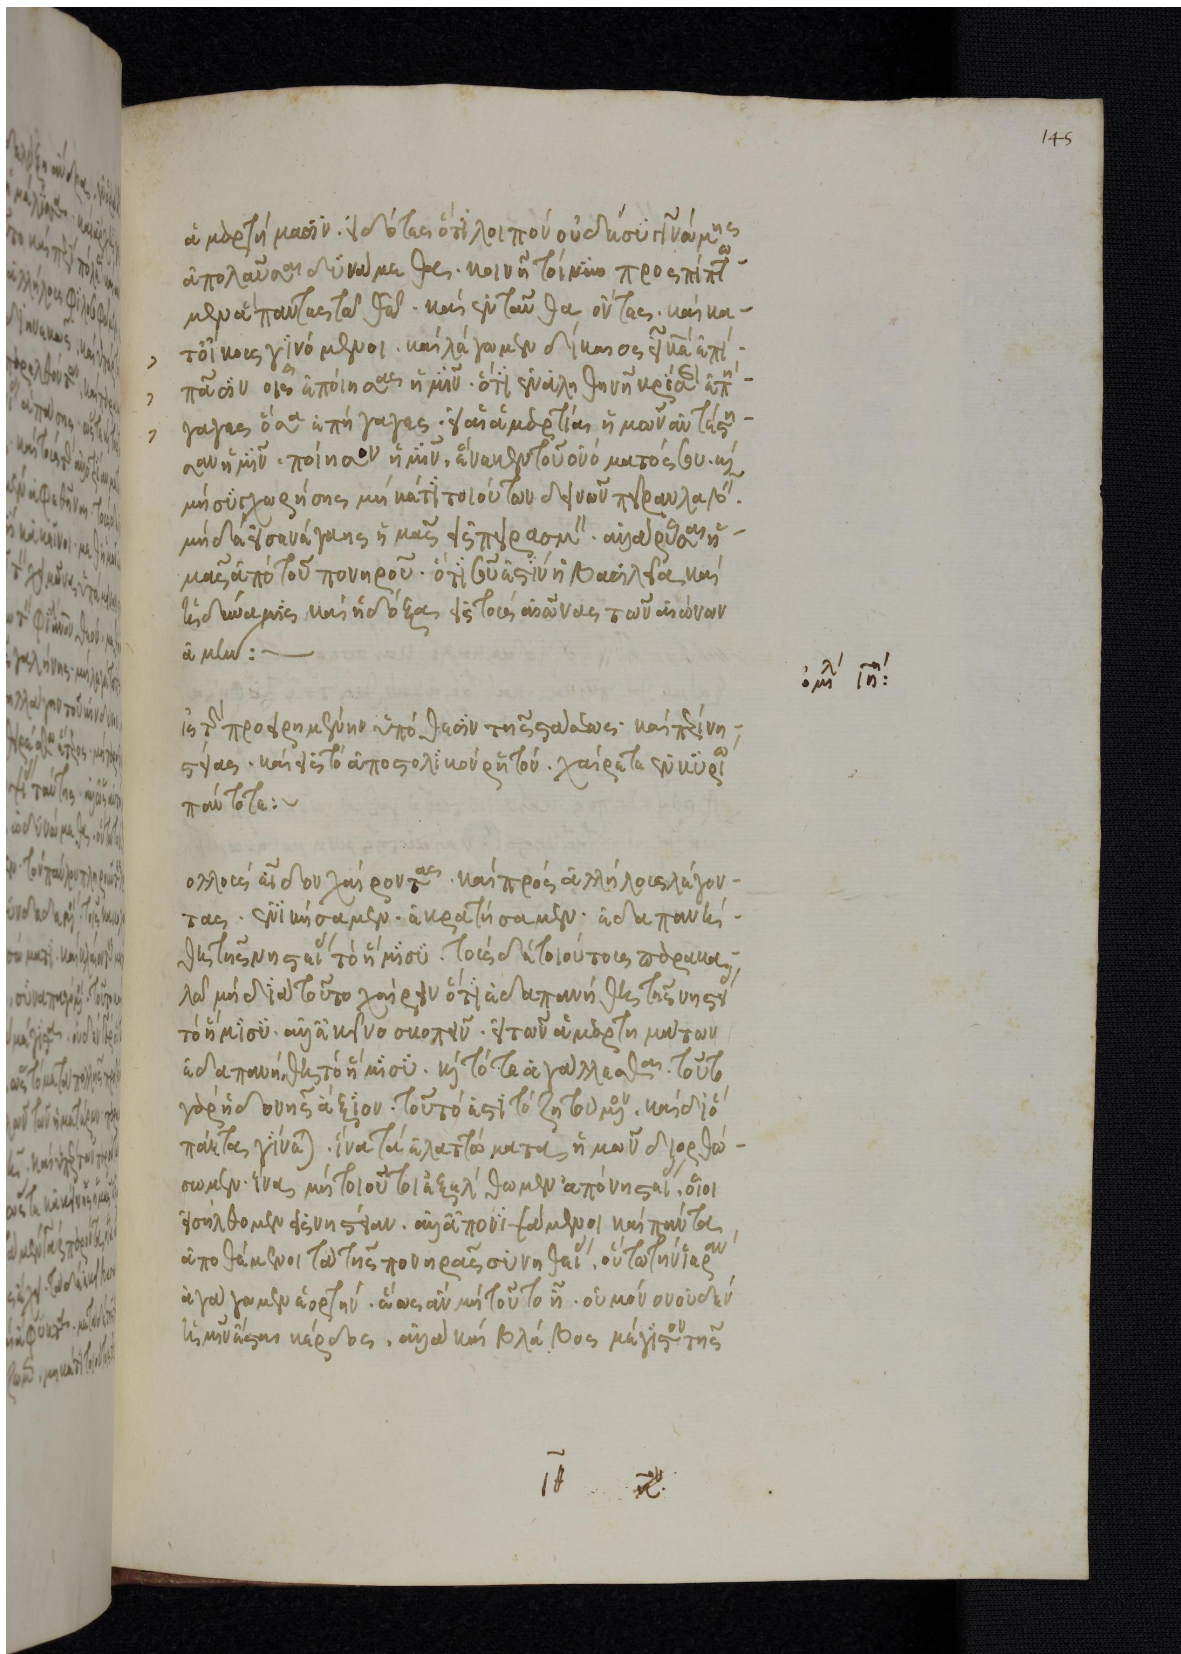 145
ἁμαρτήμασιν. εἰδότες ὅτι λοιπὸν οὐδὲ συγγνώμης
ἀπολαῦσαι δυνάμεθα. κοινῇ τοίνυν προσπίπτω-
μεν ἅπαντες τῷ θεῷ. καὶ ἐνταῦθα ὄντες. καὶ κα-
τοίκοις γινόμενοι. καὶ λέγωμεν δίκαιος εἶ κύριε ἐπὶ
πᾶσιν οἷς ἐποίησας ἡμῖν. ὅτι ἐν ἀληθινῇ κρίσει ἐπή-
γαγες ὅσα ἐπήγαγες. εἰ αἱ ἁμαρτίαι ἡμῶν ἀντέστη-
σαν ἡμῖν. ποίησον ἡμῖν, ἕνεκεν τοῦ ὀνόματός σου. καὶ
μὴ συγχωρήσῃς μηκέτι τοιούτων δεινῶν πεῖραν λαβεῖν.
μηδὲ εἰσενέγκῃς ἡμᾶς εἰς πειρασμόν. ἀλλὰ ῥῦσαι ἡ-
μᾶς ἀπὸ τοῦ πονηροῦ. ὅτι σοῦ ἐστιν ἡ βασιλεία, καὶ
ἡ δύναμις καὶ ἡ δόξα, εἰς τοὺς αἰῶνας τῶν αἰώνων
ἀμήν:
ὁμιλ ιη:
ἰς τὴν προειρημένην ὑπόθεσιν τῆς στάσεως. καὶ περὶ νη-
στείας. καὶ εἰς τὸ ἀποστολικὸν ῥητόν. χαίρετε ἐν κυρίῳ
πάντοτε:
ολλοὺς εἶδον χαίροντας. καὶ πρὸς ἀλλήλους λέγον-
τας. ἐνικήσαμεν. ἐκρατήσαμεν. ἐδαπανή-
θη τῆς νηστείας τὸ ἥμισυ. τοὺς δὲ τοιούτους παρακα-
λῶ μὴ διὰ τοῦτο χαίρειν ὅτι ἐδαπανήθη τῆς νηστείας
τὸ ἥμισυ. ἀλλ' ἐκεῖνο σκοπεῖν. εἰ τῶν ἁμαρτημάτων
ἐδαπανήθη τὸ ἥμισυ. καὶ τότε ἀγάλλεσθαι. τοῦτο
γὰρ ἡδονῆς ἄξιον. τοῦτό ἐστι τὸ ζητούμενον. καὶ διὸ
πάντα γίνεται. ἵνα τὰ ἐλαττώματα ἡμῶν διορθώ-
σωμεν. ἵνα μὴ τοιοῦτοι ἐξέλθωμεν ἀπὸ νηστείας, οἷοι
εἰσήλθομεν εἰς νηστείαν. ἀλλ' ἀπονιψάμενοι καὶ πάντα
ἀποθέμενοι τὰ τῆς πονηρᾶς συνηθείας, οὕτω τὴν ἱερὰν
ἀγάγωμεν ἑορτήν. ὡς ἐὰν μὴ τοῦτο ᾖ. οὐ μόνον οὐδὲν
ἡμῖν ἔσται κέρδος, ἀλλὰ καὶ βλάβος μέγιστον τῆς
ιθ